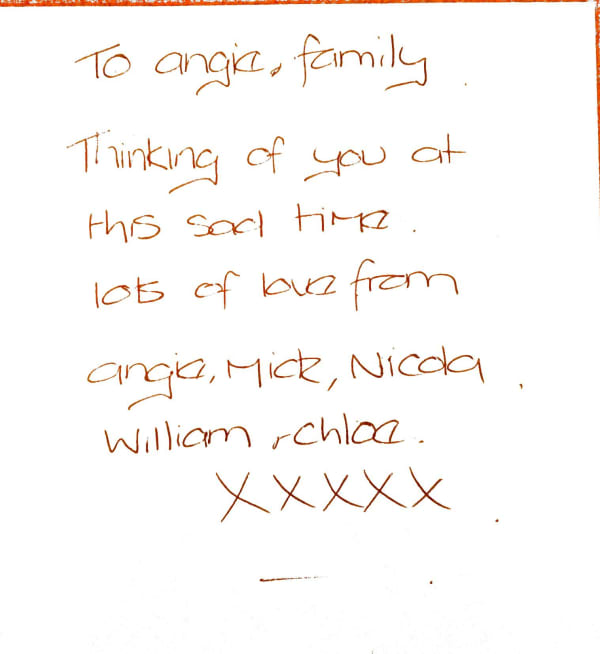 To angie, family
Thinking of you at
this sad time.
lots of love from
angie, Mick, Nicola,
William, chloe.
XXXXX